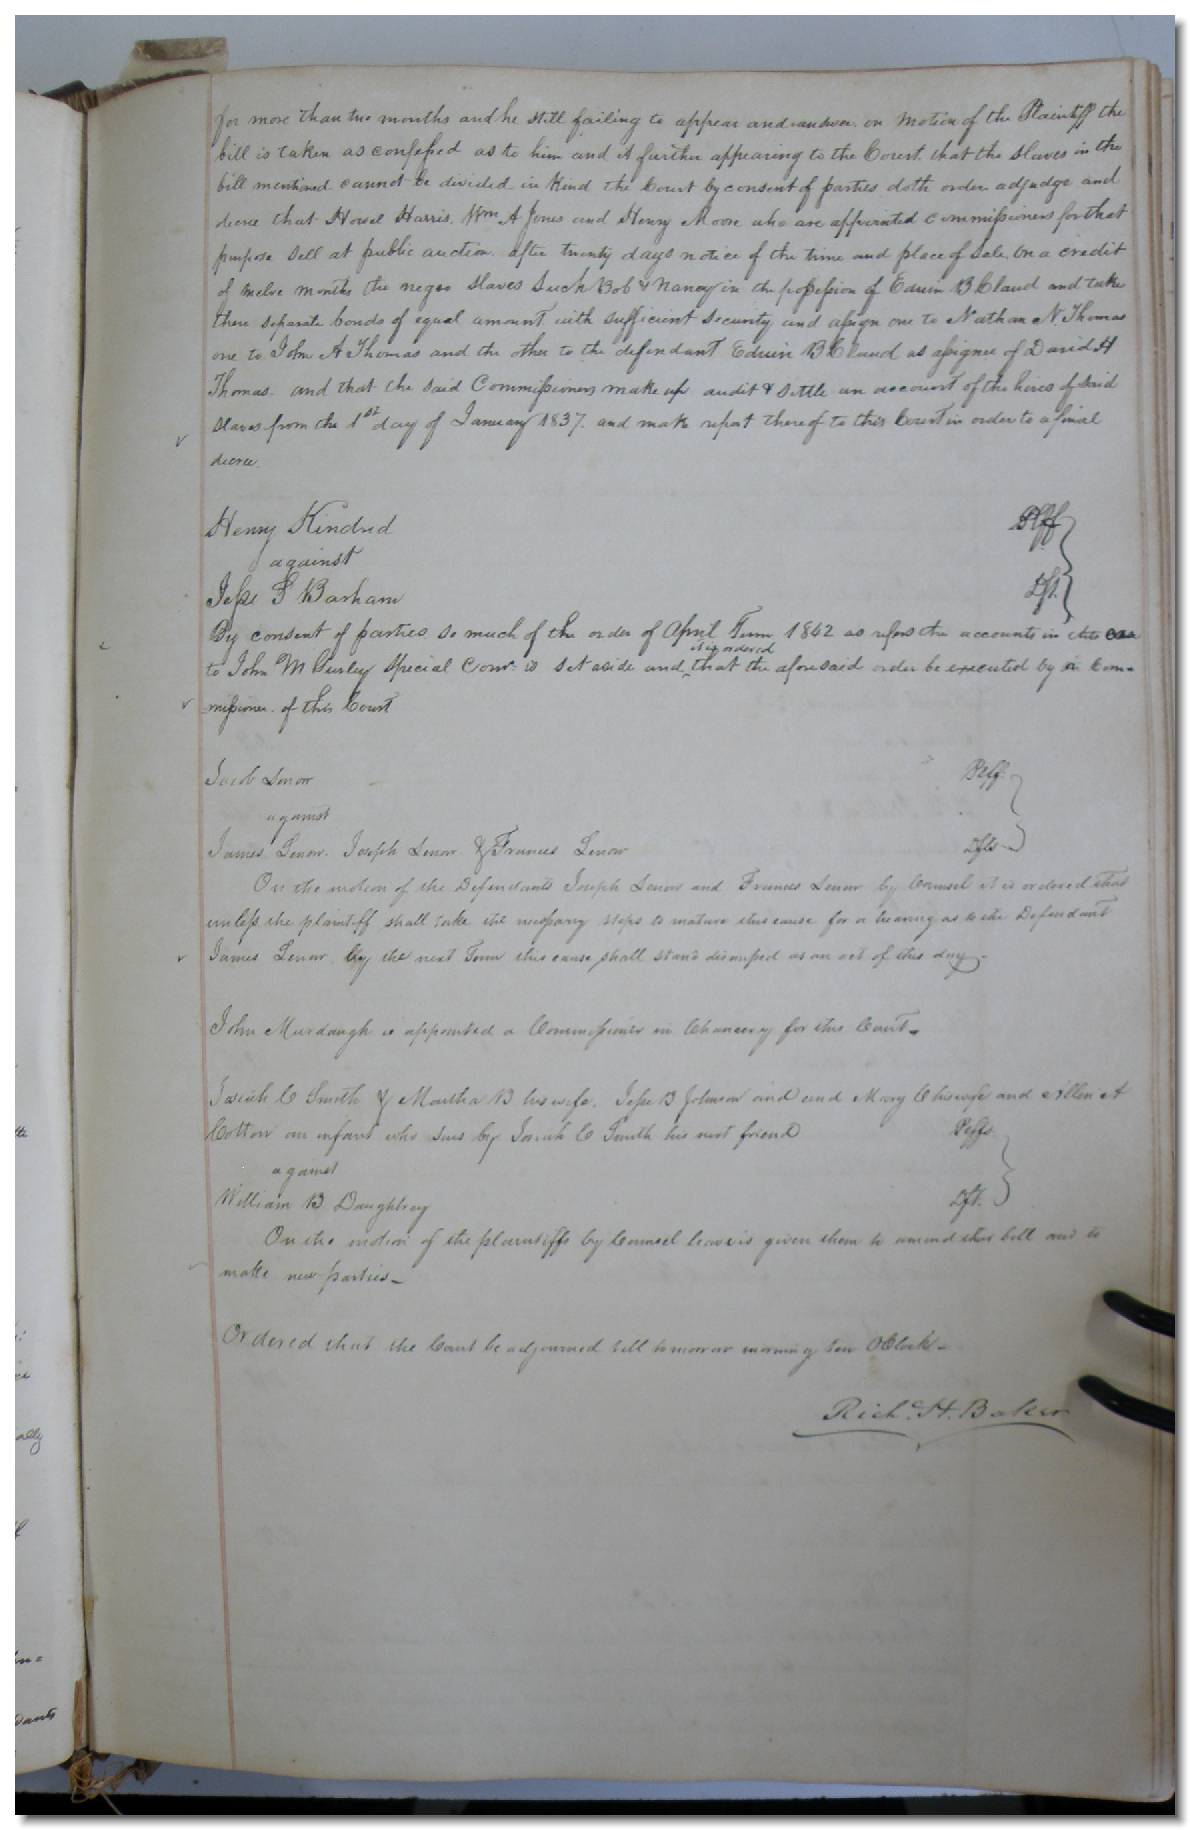 for more than two months and he still failing to appear and answer. on Motion of the Plaintiff the
bill is taken as confessed as to him and it further appearing to the Court. that the slaves in the
bill mentioned cannot be divided in kind the Court by consent of parties doth order adjudge and
decree that Howel Harris. Wm A Jones and Henry Moore who are appointed commissioners for that
purpose sell at public auction. after twenty days notice of the time and place of sale. on a credit
of twelve months the negro slaves Suck Bob & Nancy in the possession of Edwin B Claud and take
three separate bonds of equal amount with sufficient security and assign one to Nathan N. Thomas
one to John A Thomas and the other to the defendant Edwin B Claud as assignee of David H
Thomas. and that the said Commissioners make up audit & settle an account of the hires of said
slaves from the 1st day of January 1837. and make report thereof to this Court in order to a final
decree.
Henry Kindred Plff
against
Jesse S Barham Dft.
By consent of parties so much of the order of April Term 1842 as refers the accounts in this
it is ordered
to John M Gurley Special Comr. is set aside and that the aforesaid order be executed by a Com=
missioner of this Court
Jacob Lenow Plff.
against
James Lenow. Joseph Lenow & Frances Lenow Dfts
On the motion of the Defendants Joseph Lenow and Frances Lenow by Counsel it is ordered that
unless the plaintiff shall take the necessary steps to mature this cause for a hearing as to the Defendant
James Lenow by the next Term this cause shall stand dismissed as an act of this day.
John Murdaugh is appointed a Commissioner in Chancery for this Court
Josiah C Smith & Martha B his wife. Jesse B Johnson and and Mary C his wife and Allen A
Cotton an infant who sues by Josiah C Smith his next friend Plffs.
against
William B Daughtrey Dft.
On the motion of the plaintiffs by Counsel leave is given them to amend their bill and to
make new parties
Ordered that the Court be adjourned till tomorrow morning ten OClock
Richd. H. Baker